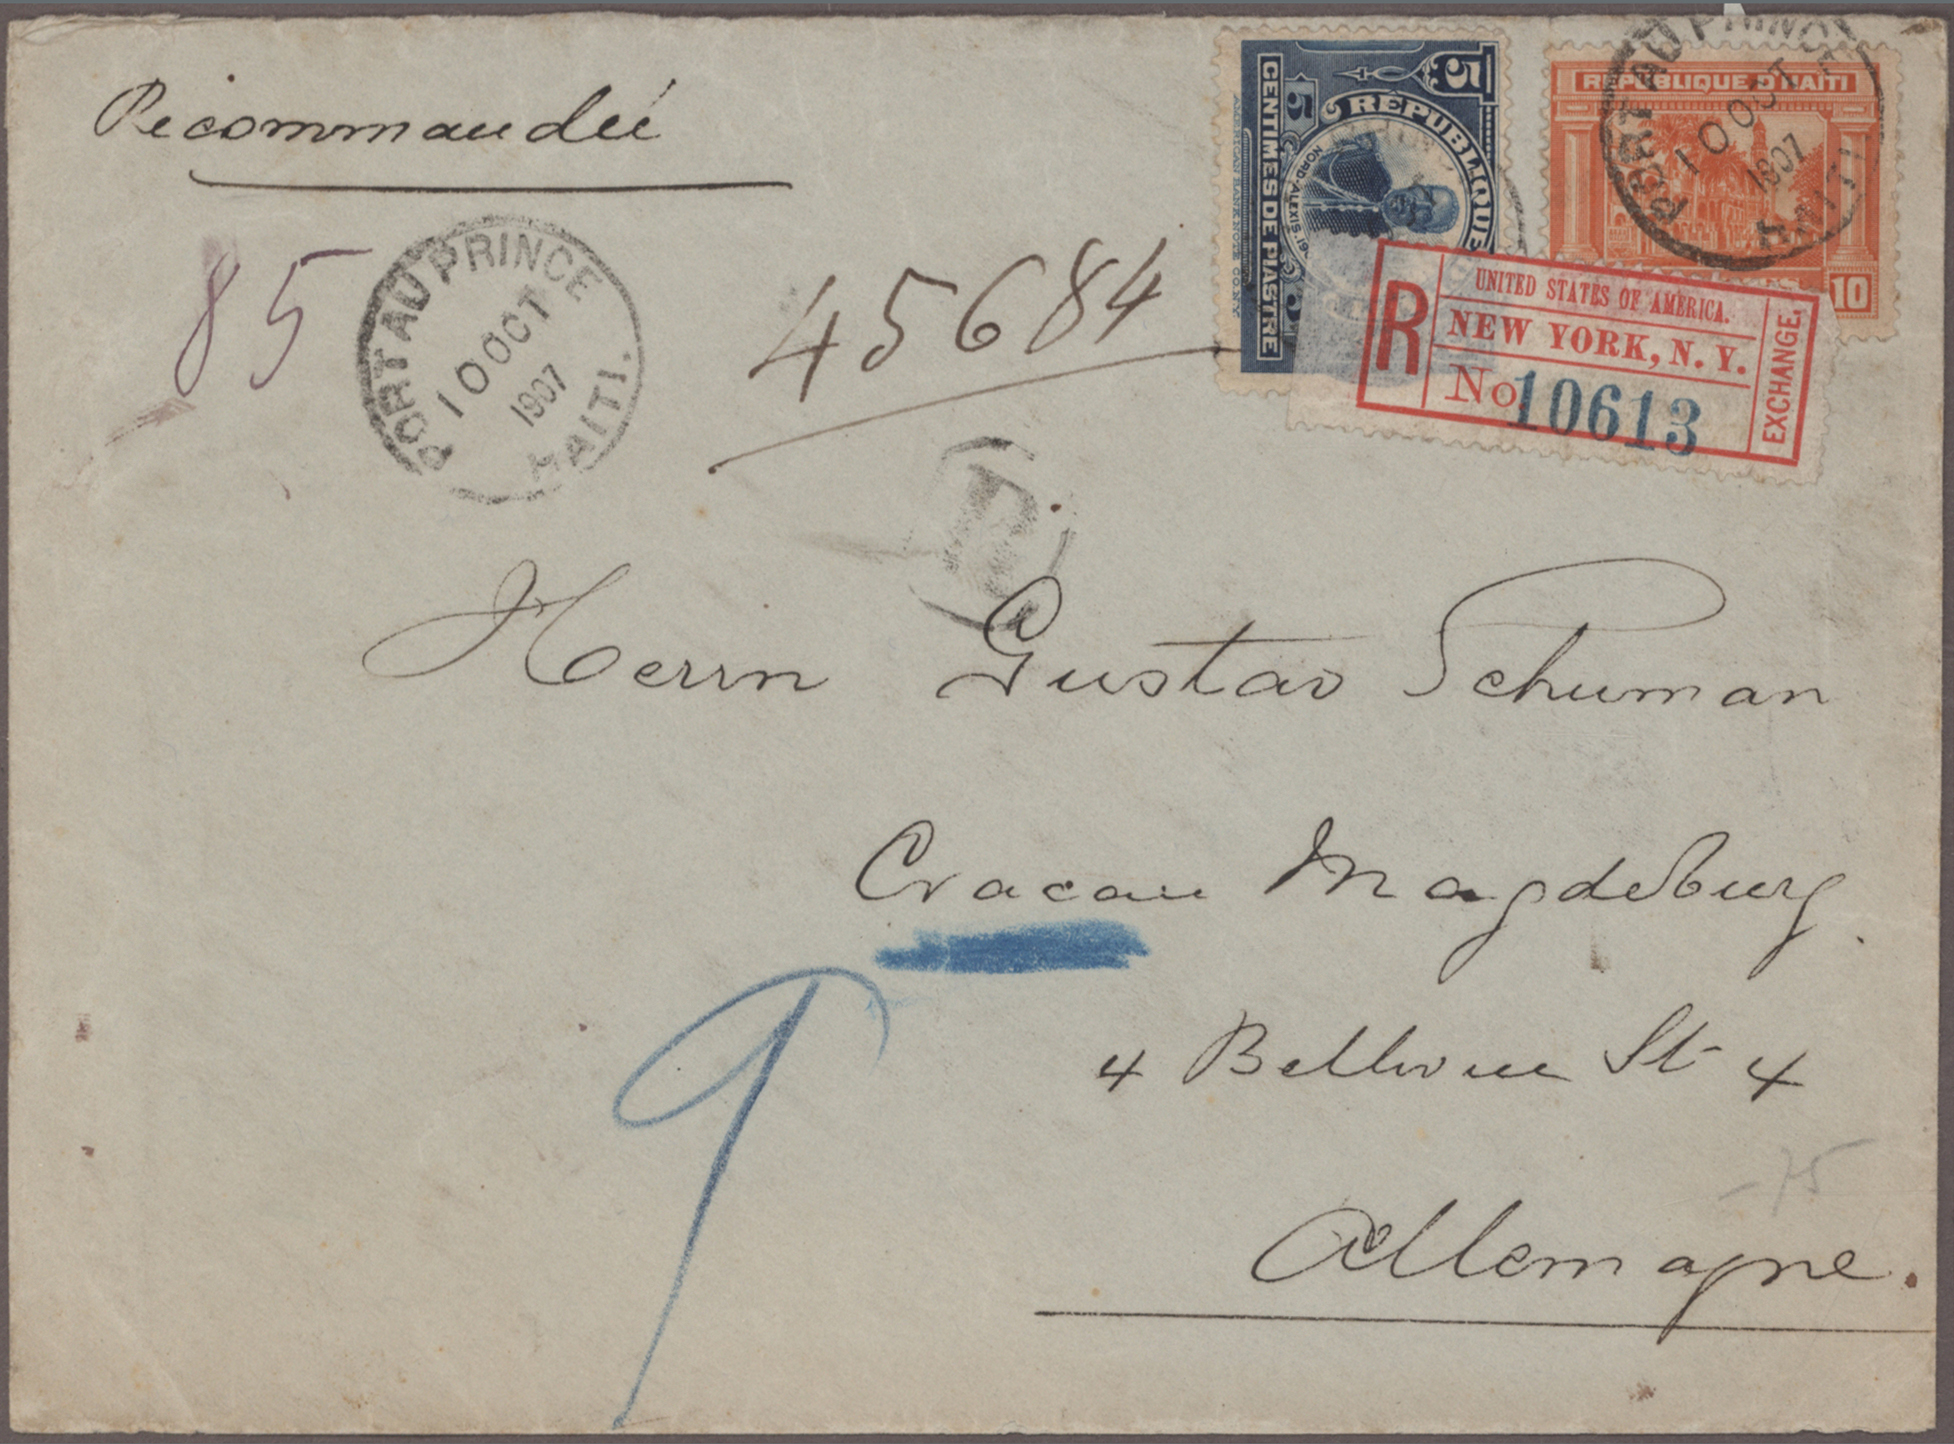 Recommandée
85
PORT AU PRINCE
10 OCT
1907
HAITI.
45684
5
CENTIMES DE PIASTRE
5
RÉPUBLIQUE
NORD-ALEXIS.
5
AMERICAN BANK NOTE CO. N.Y.
REPUBLIQUE D'HAITI
10
PORT AU PRINCE
10 OCT
1907
HAITI.
R
UNITED STATES OF AMERICA.
NEW YORK, N. Y.
No 10613
EXCHANGE.
R
Herrn Gustav Schuman
Cracau Magdeburg.
4 Bellvue St 4
75
Allemagne.
9